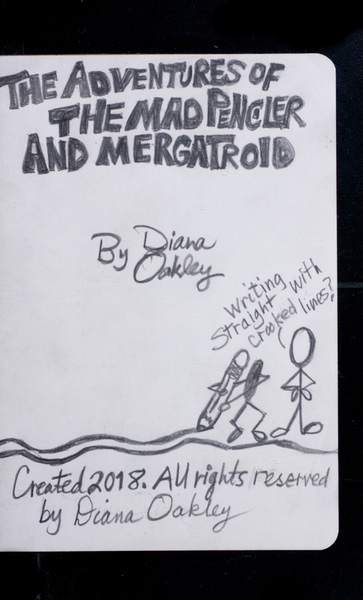 THE ADVENTURES OF
THE MAD PENCILER
AND MERGATROID
By Diana
Oakley
Writing
straight with
crooked lines?
Created 2018. All rights reserved
by Diana Oakley